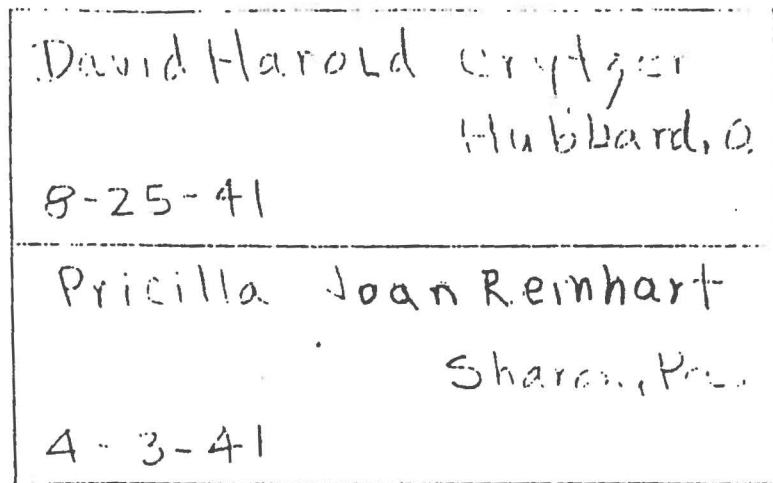 David Harold Crytzer
Hubbard, O.
8-25-41
Pricilla Joan Reinhart
Sharon, Pa.
4-3-41